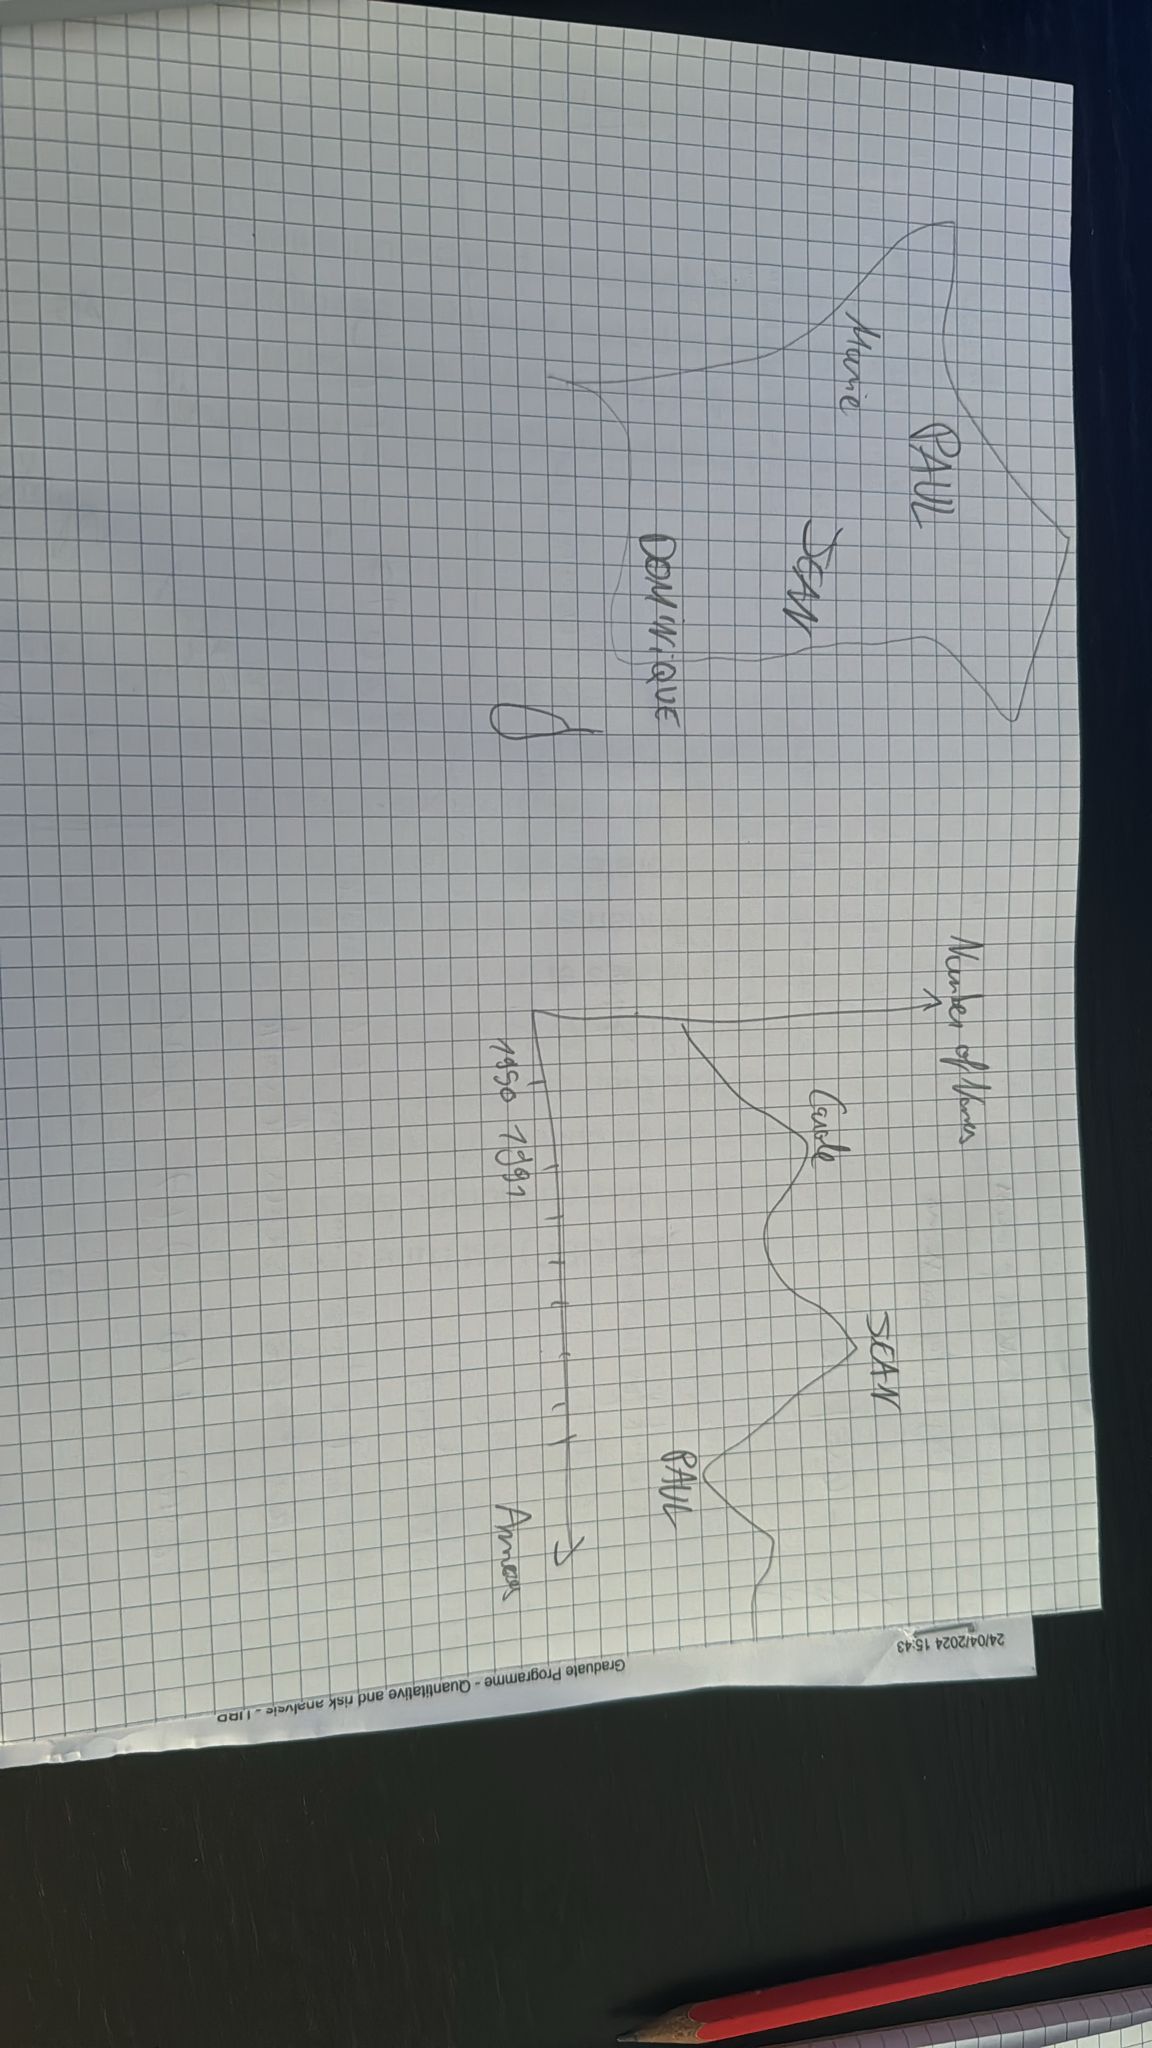 PAUL
Marie
JEAN
DOMINIQUE
Number of Names
Carole
JEAN
PAUL
1990 1991
Annees
24/04/2024 15:43
Graduate Programme - Quantitative and risk analysis -